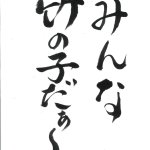 みんな
竹の子だぁ〜